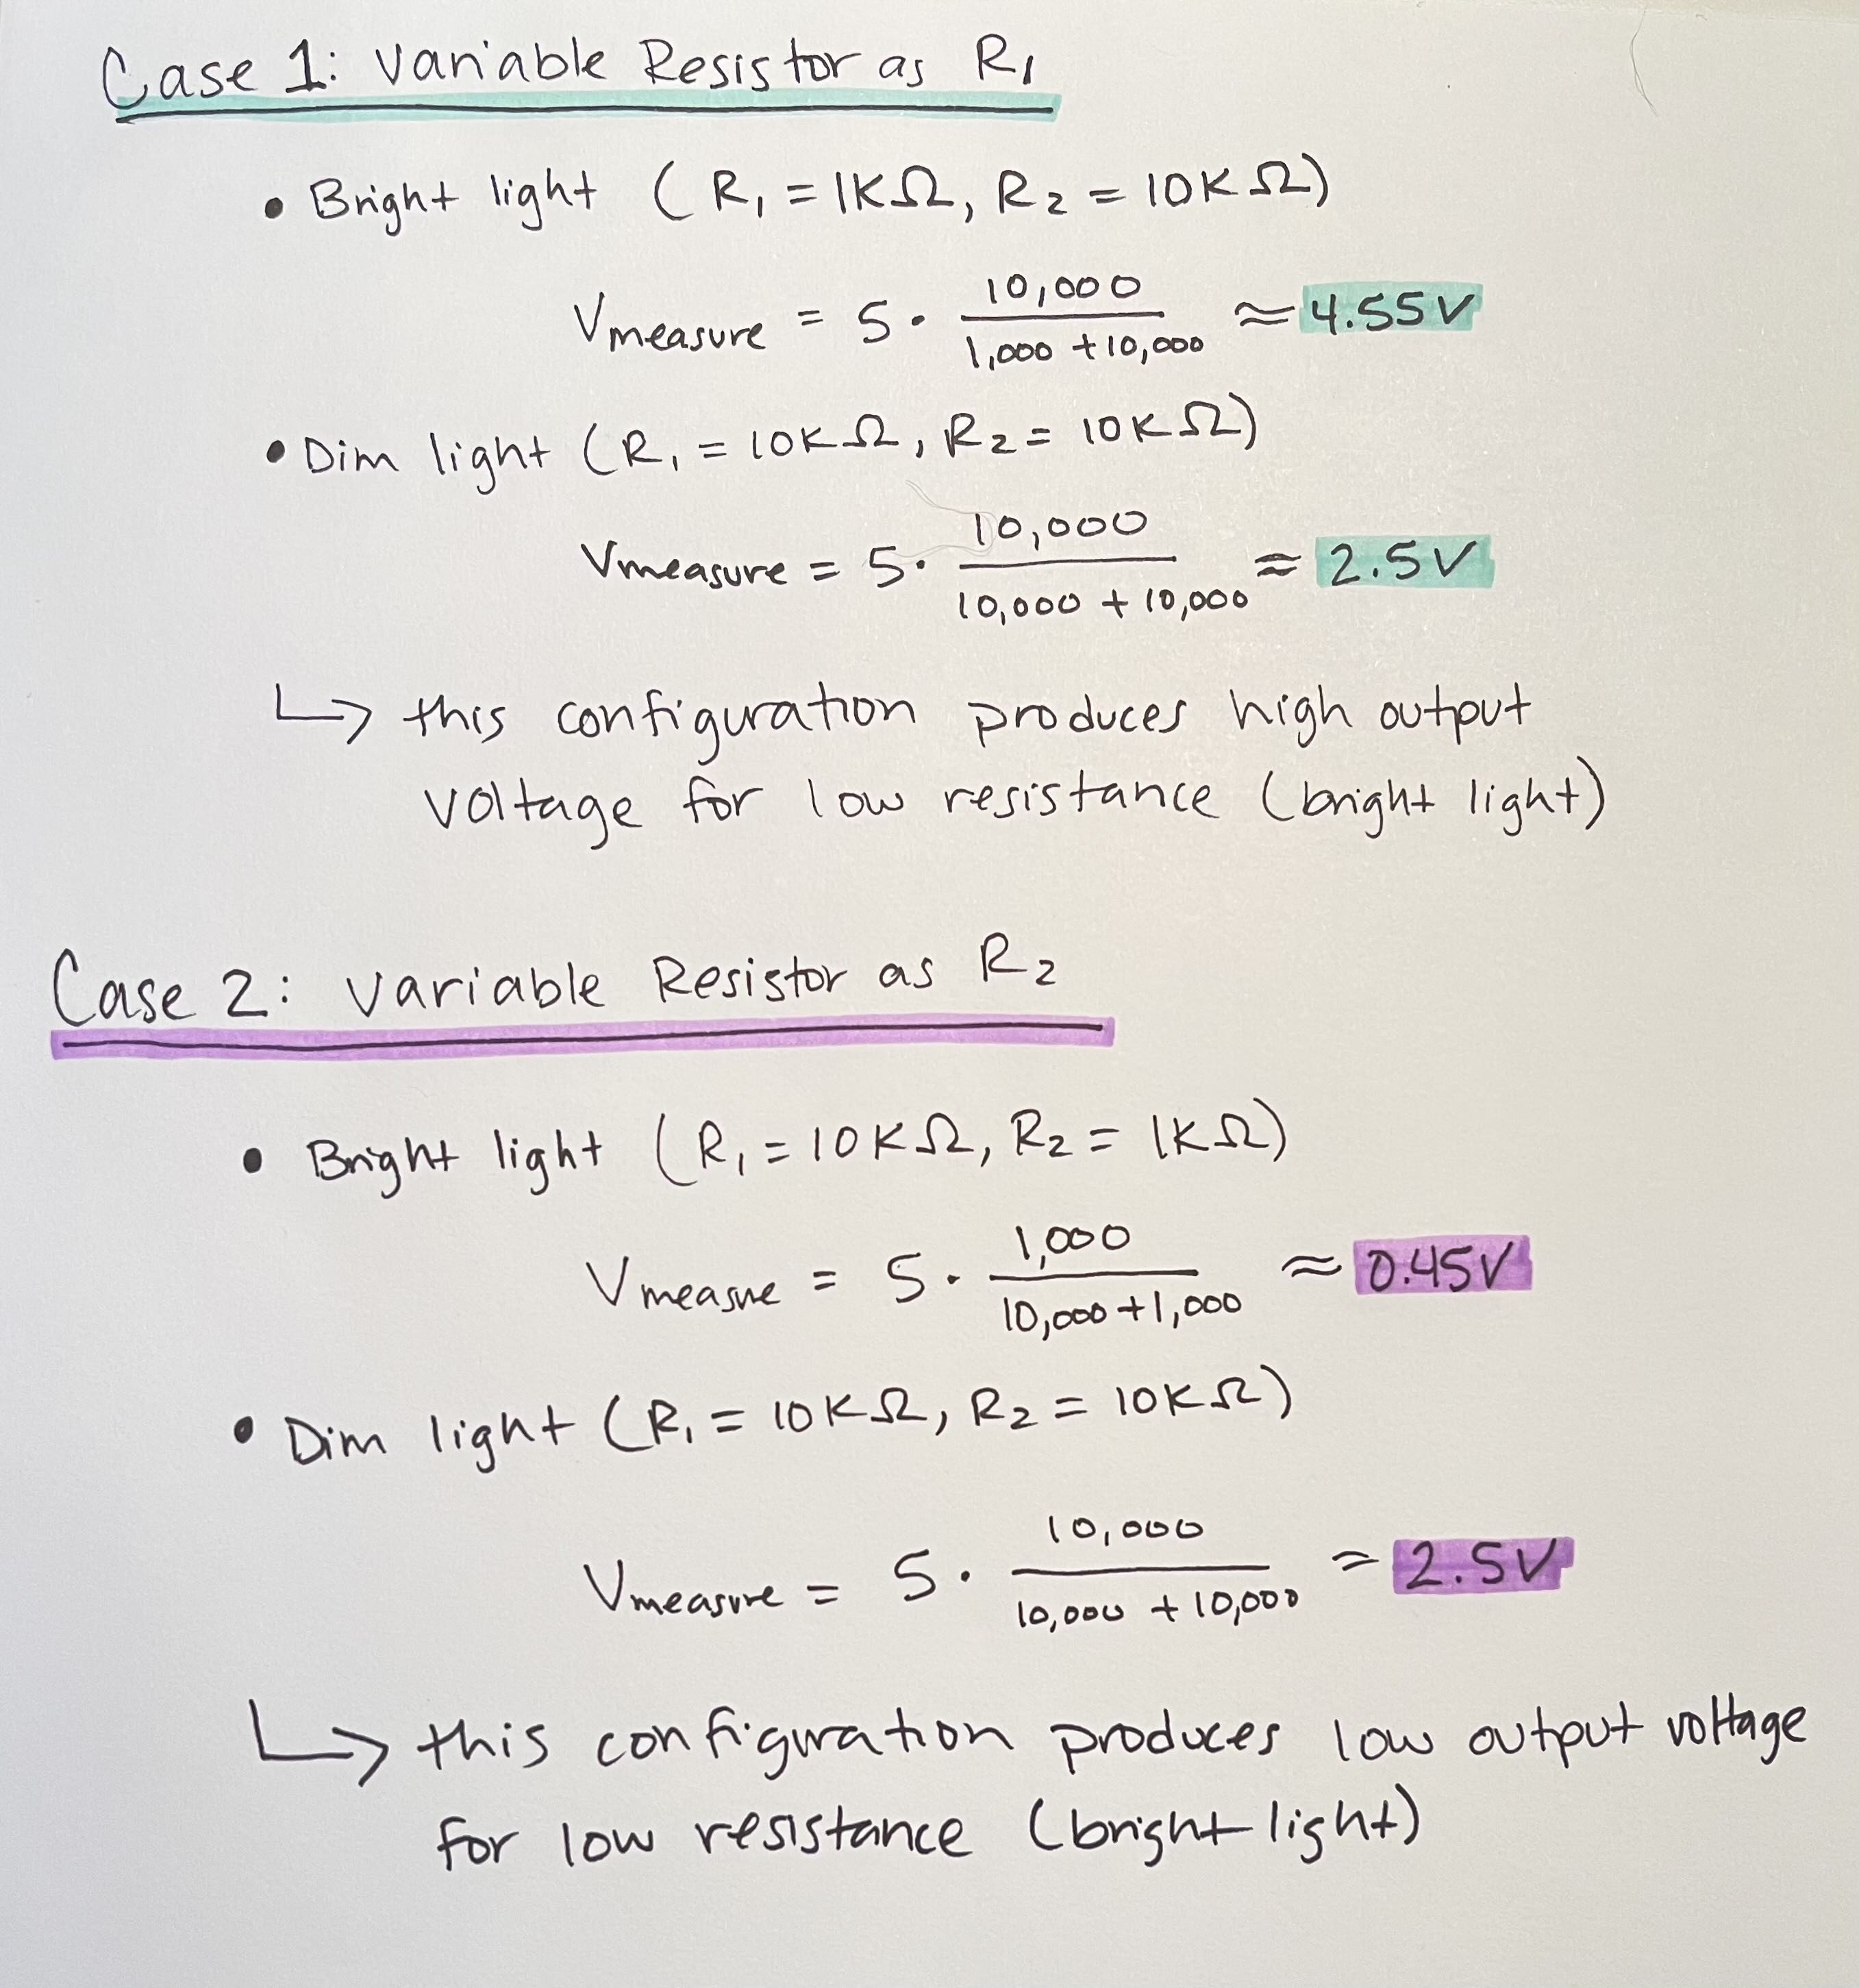 Case 1: Variable Resistor as R₁
• Bright light (R₁ = 1KΩ, R₂ = 10KΩ)
Vmeasure = 5 · 10,000 / 1,000 + 10,000 ≈ 4.55V
• Dim light (R₁ = 10KΩ, R₂ = 10KΩ)
Vmeasure = 5 · 10,000 / 10,000 + 10,000 ≈ 2.5V
↳ this configuration produces high output
voltage for low resistance (bright light)
Case 2: Variable Resistor as R₂
• Bright light (R₁ = 10KΩ, R₂ = 1KΩ)
Vmeasure = 5 · 1,000 / 10,000 + 1,000 ≈ 0.45V
• Dim light (R₁ = 10KΩ, R₂ = 10KΩ)
Vmeasure = 5 · 10,000 / 10,000 + 10,000 = 2.5V
↳ this configuration produces low output voltage
for low resistance (bright light)